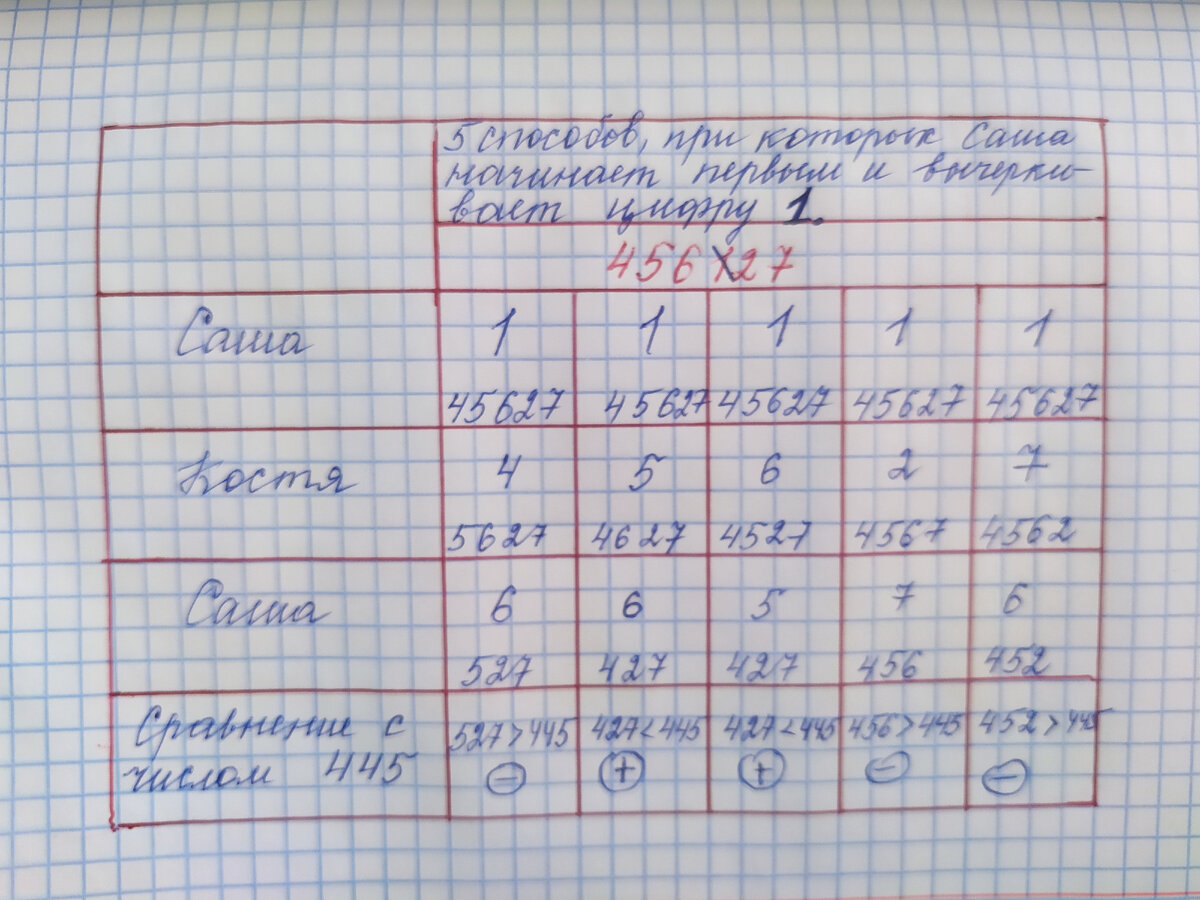 5 способов, при которых Саша
начинает первым и вычерки-
вает цифру 1.
456127
Саша 1 1 1 1 1
45627 45627 45627 45627 45627
Костя 4 5 6 2 7
5627 4627 4527 4567 4562
Саша 6 6 5 7 6
527 427 427 456 452
Сравнение с 527>445 427<445 427<445 456>445 452>445
числом 445 - + + - -